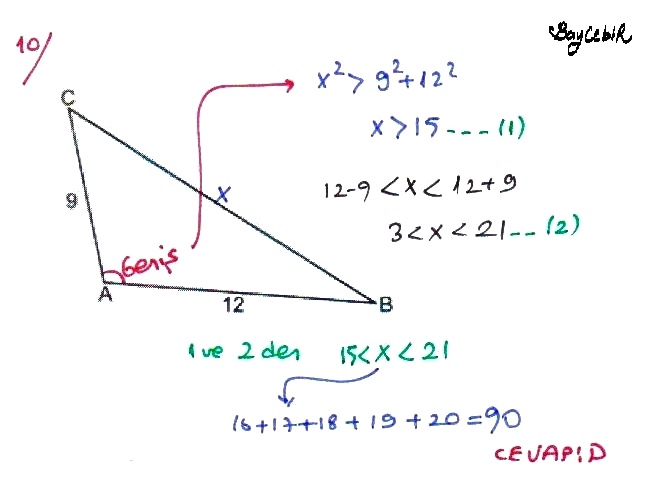 BayCebiR
10/
x² > 9² + 12²
x > 15 --- (1)
C
12-9 < x < 12+9
9
x
3 < x < 21 -- (2)
Geniş
A
12
B
1 ve 2 den 15 < x < 21
16+17+18+19+20=90
CEVAP: D